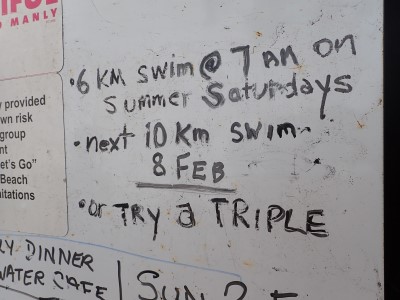 IFUL
O MANLY
y provided
wn risk
group
nt
et's Go"
Beach
itations
• 6 KM swim @ 7 AM on
Summer Saturdays
• next 10 Km swim
8 FEB
• or TRY a TRIPLE
LY DINNER
WATER CAFE
SUN 2